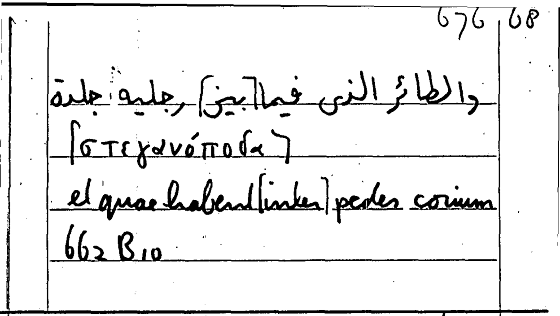 676 68
والطائر الذى فيما [بين] رجليه جلدة
[στεγανόποδα]
et quae habent [inter] pedes corium
662 B 10